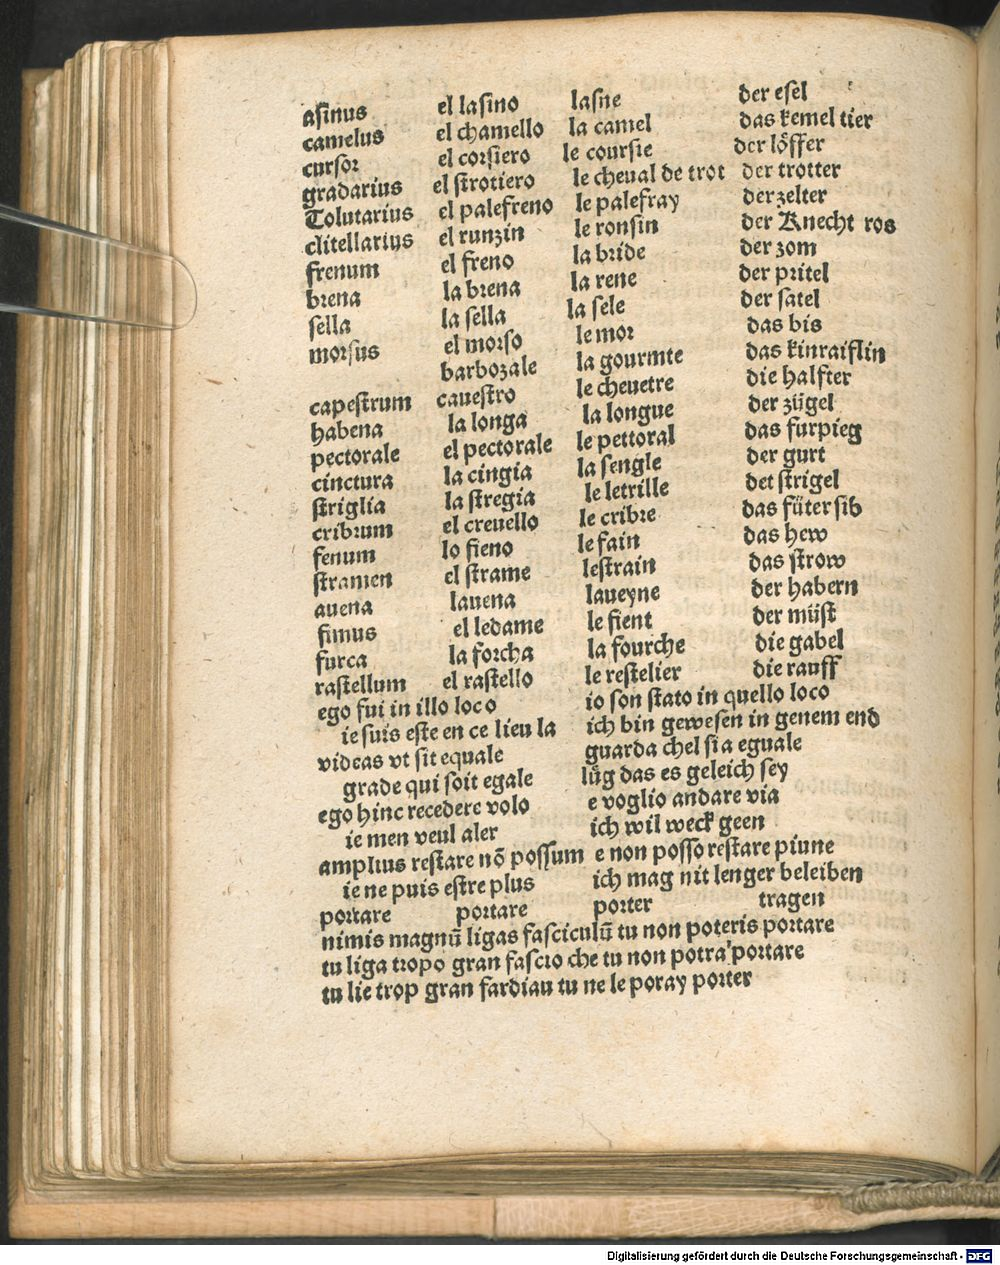 asinus el lasino lasne der esel
camelus el chamello la camel das kemel tier
cursor el corsiero le coursie der löffer
gradarius el strotiero le cheual de trot der trotter
Tolutarius el palefreno le palefray der zelter
clitellarius el runzin le ronsin der Knecht ros
frenum el freno la bride der zom
brena la brena la rene der pritel
sella la sella la sele der satel
morsus el morso le mor das bis
barbozale la gourmte das kinraiflin
capestrum cauestro le cheuetre die halfter
habena la longa la longue der zügel
pectorale el pectorale le pettoral das furpieg
cinctura la cingia la sengle der gurt
striglia la stregia le letrille det strigel
cribrum el creuello le cribre das füter sib
fenum lo fieno le fain das hew
stramen el strame lestrain das strow
auena lauena laueyne der habern
fimus el ledame le fient der müst
furca la forcha la fourche die gabel
rastellum el rastello le restelier die rauff
ego fui in illo loco io son stato in quello loco
ie suis este en ce lieu la ich bin gewesen in genem end
videas vt sit equale guarda chel si a eguale
grade qui soit egale lüg das es geleich sey
ego hinc recedere volo e voglio andare via
ie men veul aler ich wil weck geen
amplius restare nō possum e non posso restare piune
ie ne puis estre plus ich mag nit lenger beleiben
portare portare porter tragen
nimis magnū ligas fasciculū tu non poteris portare
tu liga tropo gran fascio che tu non potra'portare
tu lie trop gran fardiau tu ne le poray porter
Digitalisierung gefördert durch die Deutsche Forschungsgemeinschaft - DFG